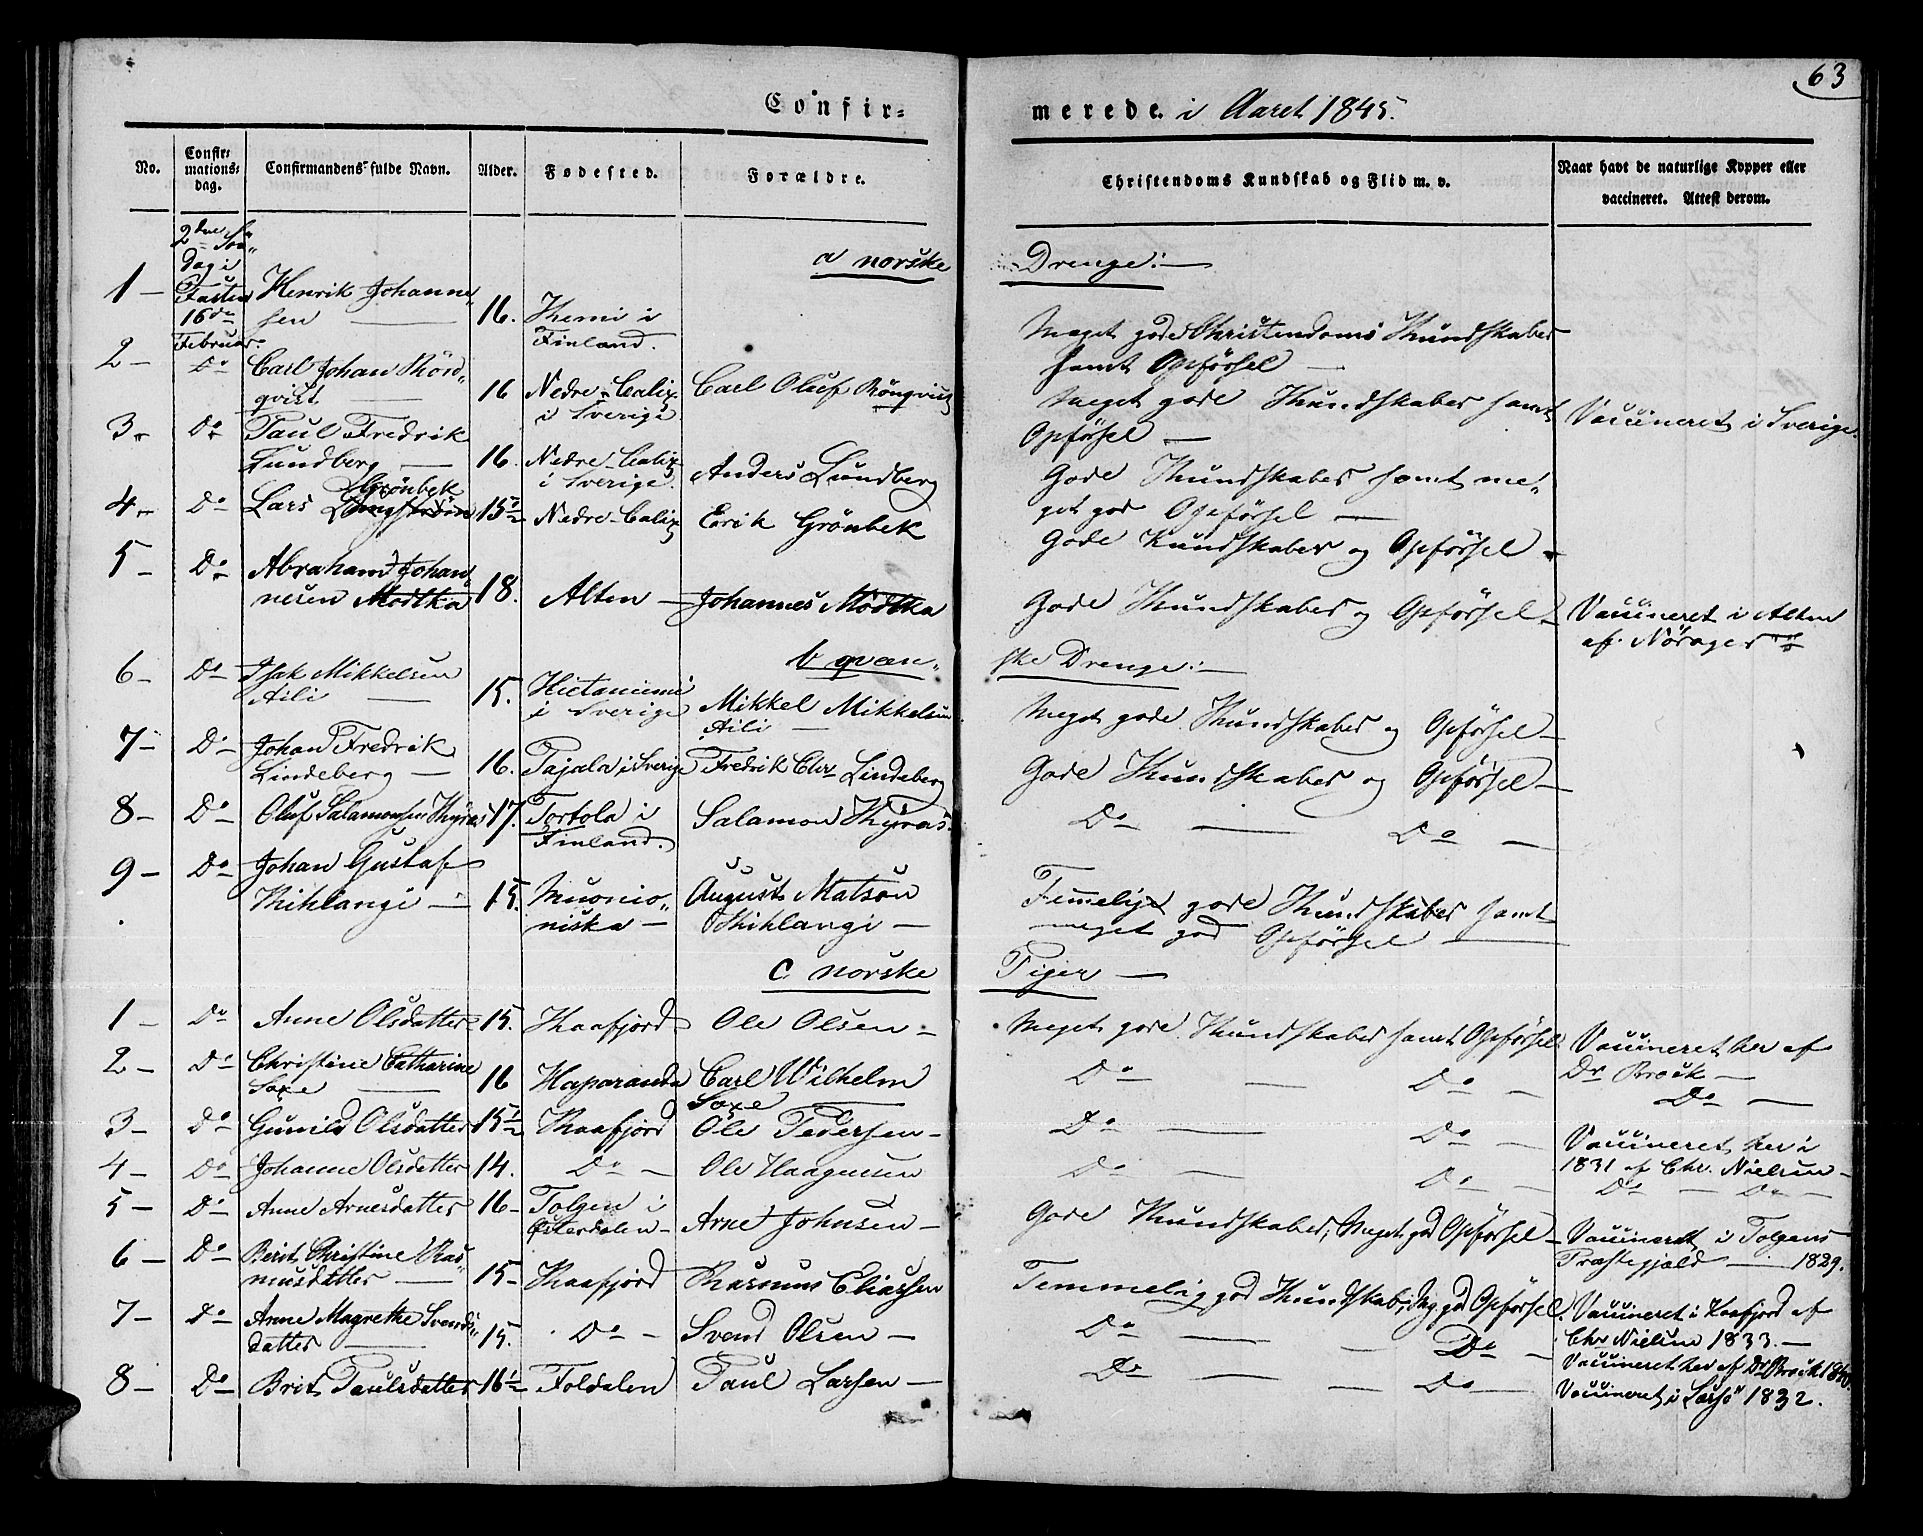 63
Confir-
merede. i Aaret 1845.
No.
Confir-
mations-
dag.
Confirmandens fulde Navn.
Alder.
Fødested.
Forældre.
Christendoms Kundskab og Flid m. v.
Naar havt de naturlige Kopper eller
vaccineret. Attest derom.
a norske
Drenge:—
1 —
2den Søn-
dag i
Fasten
16de
Februar.
Henrik Johanne-
sen —
16.
Kemi i
Finland.
Meget gode Christendoms Kundskaber
samt Opførsel —
2 —
Do
Carl Johan
qvist —
16
Nedre-Calix
i Sverige
Carl Oluf Rönqvist
Meget gode Kundskaber samt
Opførsel —
Vaccineret i Sverige.
3 —
Do
Paul Fredrik
Lundberg —
16.
Nedre-Calix
i Sverige.
Anders Lundberg
Gode Kundskaber samt me-
get god Opførsel —
4 —
Do
Grönbek
Lars
15½
Nedre-Calix
Erik Grönbek
Gode Kundskaber og Opførsel —
5 —
Do
Abraham Johan-
nesen Modtka
18.
Alten —
Johannes Modtka
Gode Kundskaber og Opførsel —
Vaccineret i Alten
af
b qvæn-
ske Drenge:—
6 —
Do
Isak Mikkelsen
Aili —
15.
Hietaniemi
i Sverige
Mikkel Mikkelsen
Aili —
Meget gode Kundskaber og Opførsel —
7 —
Do
Johan Fredrik
Lindeberg —
16.
Pajala i Sverige
Fredrik Chr Lindeberg
Gode Kundskaber og Opførsel —
8 —
Do
Oluf Salamonsen
17.
Tortola i
Finland.
Salamon
Do — Do —
9 —
Do
Johan Gustaf
Kihlangi —
15.
Muonio-
niska —
August Matson
Kihlangi —
Temmelig gode Kundskaber samt
meget god Opførsel —
c norske
Piger —
1 —
Do
Anne Olsdatter
15.
Kaafjord
Ole Olsen —
Meget gode Kundskaber samt Opførsel
Vaccineret her af
Dr Brock —
2 —
Do
Christine Catharine
Saxe —
16
Haparanda
Carl Wilhelm
Saxe —
Do — Do —
Do —
3 —
Do
Gunild Olsdatter
15½
Kaafjord
Ole Pedersen —
Do — Do —
Vaccineret her i
1831 af Chr. Nielsen —
4 —
Do
Johanne Olsdatter
14.
Do —
Ole Haagensen
Do — Do —
Do — Do —
5 —
Do
Anne Arnesdatter
16 —
Tolgen i
Østerdalen —
Arne Johnsen —
Gode Kundskaber, Meget god Opførsel —
Vaccineret i Tolgens
Præstegjæld — 1829.
6 —
Do
Berit Christine Ras-
musdatter —
15 —
Kaafjord
Rasmus Eliassen
Temmelig god Kundskab, god Opførsel.
Vaccineret i Kaafjord af
Chr Nielsen 1833. —
7 —
Do
Anne Magrethe Svends-
datter —
15.
Do —
Svend Olsen —
Do — Do —
Vaccineret her af Dr Brock
8 —
Do
Brit Paulsdatter
16½
Foldalen
Paul Larsen —
Do — Do —
Vaccineret i 1832.